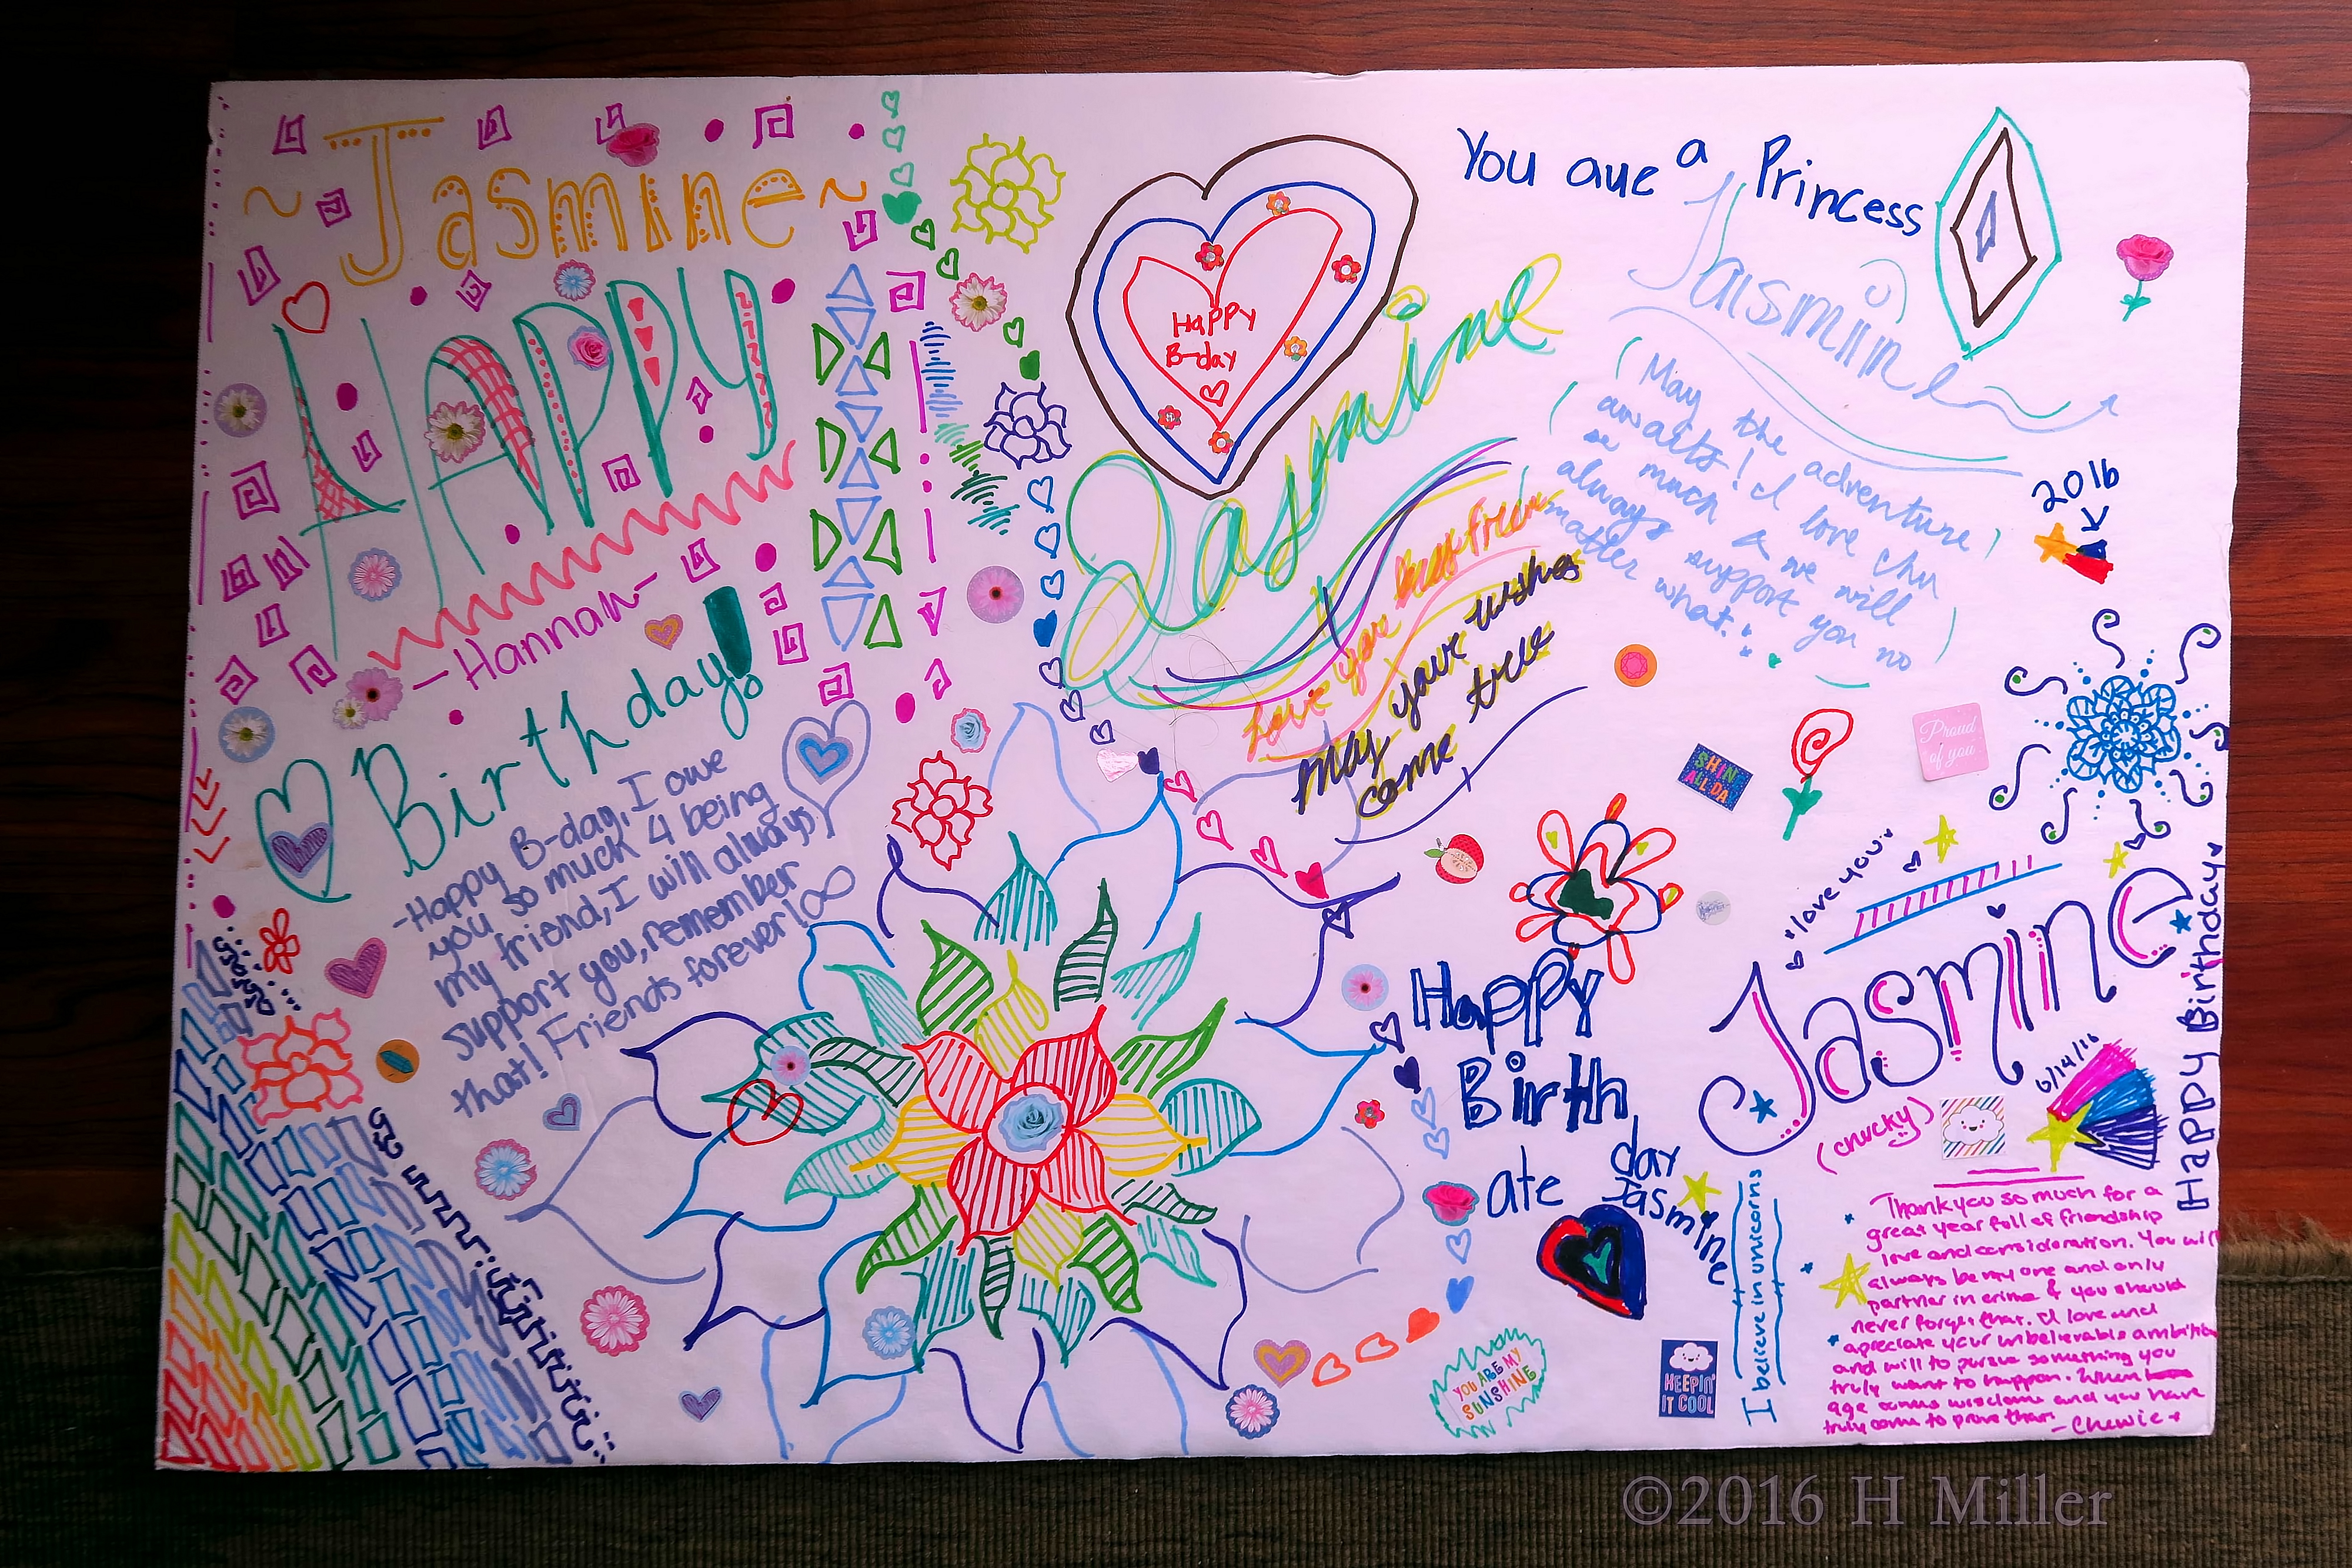 ~Jasmine~
HAPPY
-Hannah-
Birthday!
-Happy B-day, I owe
you so much 4 being
my friend, I will always
support you, remember
that! Friends forever!∞
Happy
B-day
Jasmine
Love you
May your wishes
come true
You are a Princess
Jasmine
(May the adventure)
awaits! I love chu
so much & we will
always support you no
matter what.
2016
Proud
of you
SHIN
ALL DA
"love you"
Jasmine
Happy Birthday
6/14/16
(chucky)
Happy
Birth
day
ate
Jasmine
I believe in unicorns
YOU ARE MY
SUNSHINE
KEEPIN'
IT COOL
Thank you so much for a
great year full of friendship
love and consideration. You will
always be my one and only
partner in crime & you should
never forget that. I love and
apreciate your unbelievable ambition
and will to pursue something you
truly want to happen. When
age comes wisdom and you have
truly come to prove that.
-Chewie
©2016 H Miller